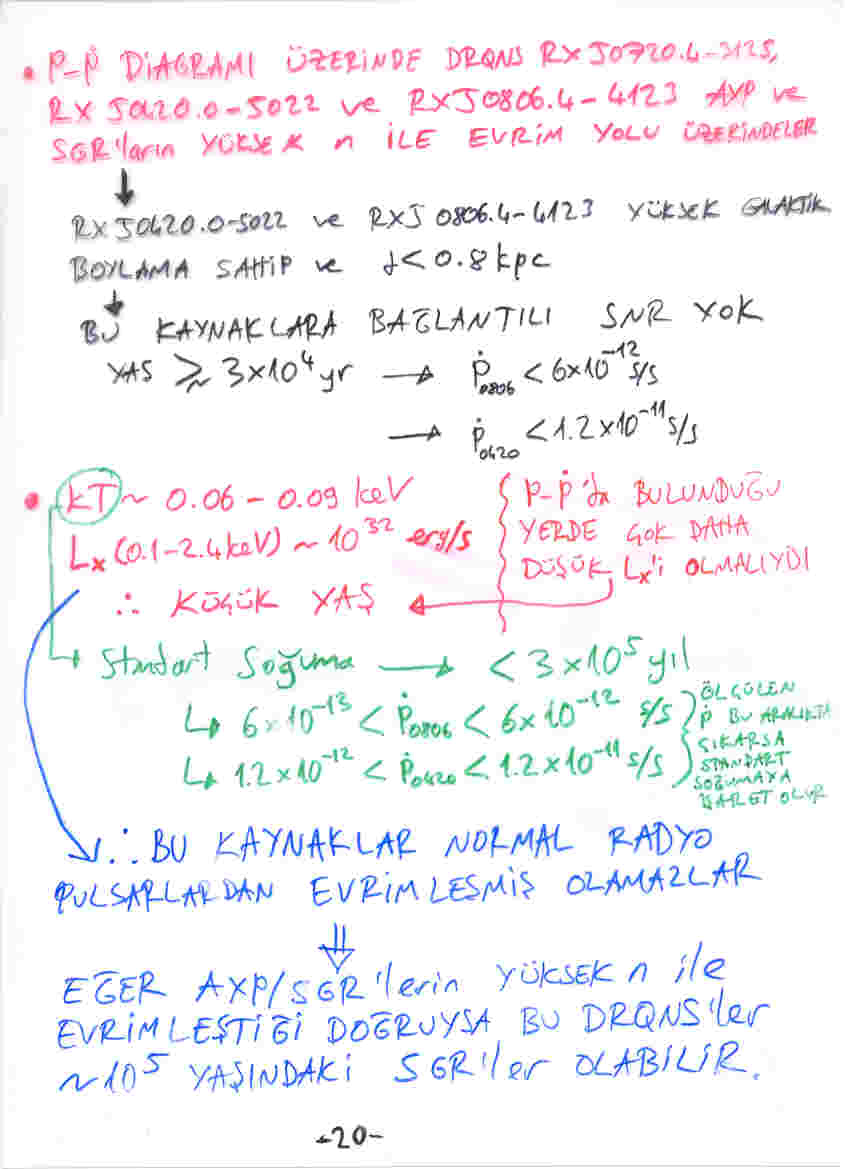 • P-Ṗ DİAGRAMI ÜZERİNDE DRQNS RXJ0720.4-3125,
RXJ0420.0-5022 ve RXJ0806.4-4123 AXP ve
SGR'ların YÜKSEK n İLE EVRİM YOLU ÜZERİNDELER
↓
RXJ0420.0-5022 ve RXJ0806.4-4123 YÜKSEK GALAKTİK
BOYLAMA SAHİP ve d<0.8kpc
↓
BU KAYNAKLARA BAĞLANTILI SNR YOK
YAŞ ≳ 3x10⁴yr → Ṗ₀₈₀₆ < 6x10⁻¹² s/s
→ Ṗ₀₄₂₀ < 1.2x10⁻¹¹ s/s
• kT ~ 0.06 - 0.09 keV
Lx (0.1-2.4keV) ~ 10³² erg/s
∴ KÜÇÜK YAŞ
P-Ṗ'da BULUNDUĞU
YERDE ÇOK DAHA
DÜŞÜK Lx'i OLMALIYDI
→ Standart Soğuma → < 3x10⁵ yıl
↳ 6x10⁻¹³ < Ṗ₀₈₀₆ < 6x10⁻¹² s/s
↳ 1.2x10⁻¹² < Ṗ₀₄₂₀ < 1.2x10⁻¹¹ s/s
ÖLÇÜLEN
Ṗ BU ARALIKTA
ÇIKARSA
STANDART
SOĞUMAYA
İŞARET OLUR
∴ BU KAYNAKLAR NORMAL RADYO
PULSARLARDAN EVRİMLEŞMİŞ OLAMAZLAR
⇓
EĞER AXP/SGR'lerin YÜKSEK n ile
EVRİMLEŞTİĞİ DOĞRUYSA BU DRQNS'ler
~10⁵ YAŞINDAKİ SGR'ler OLABİLİR.
-20-